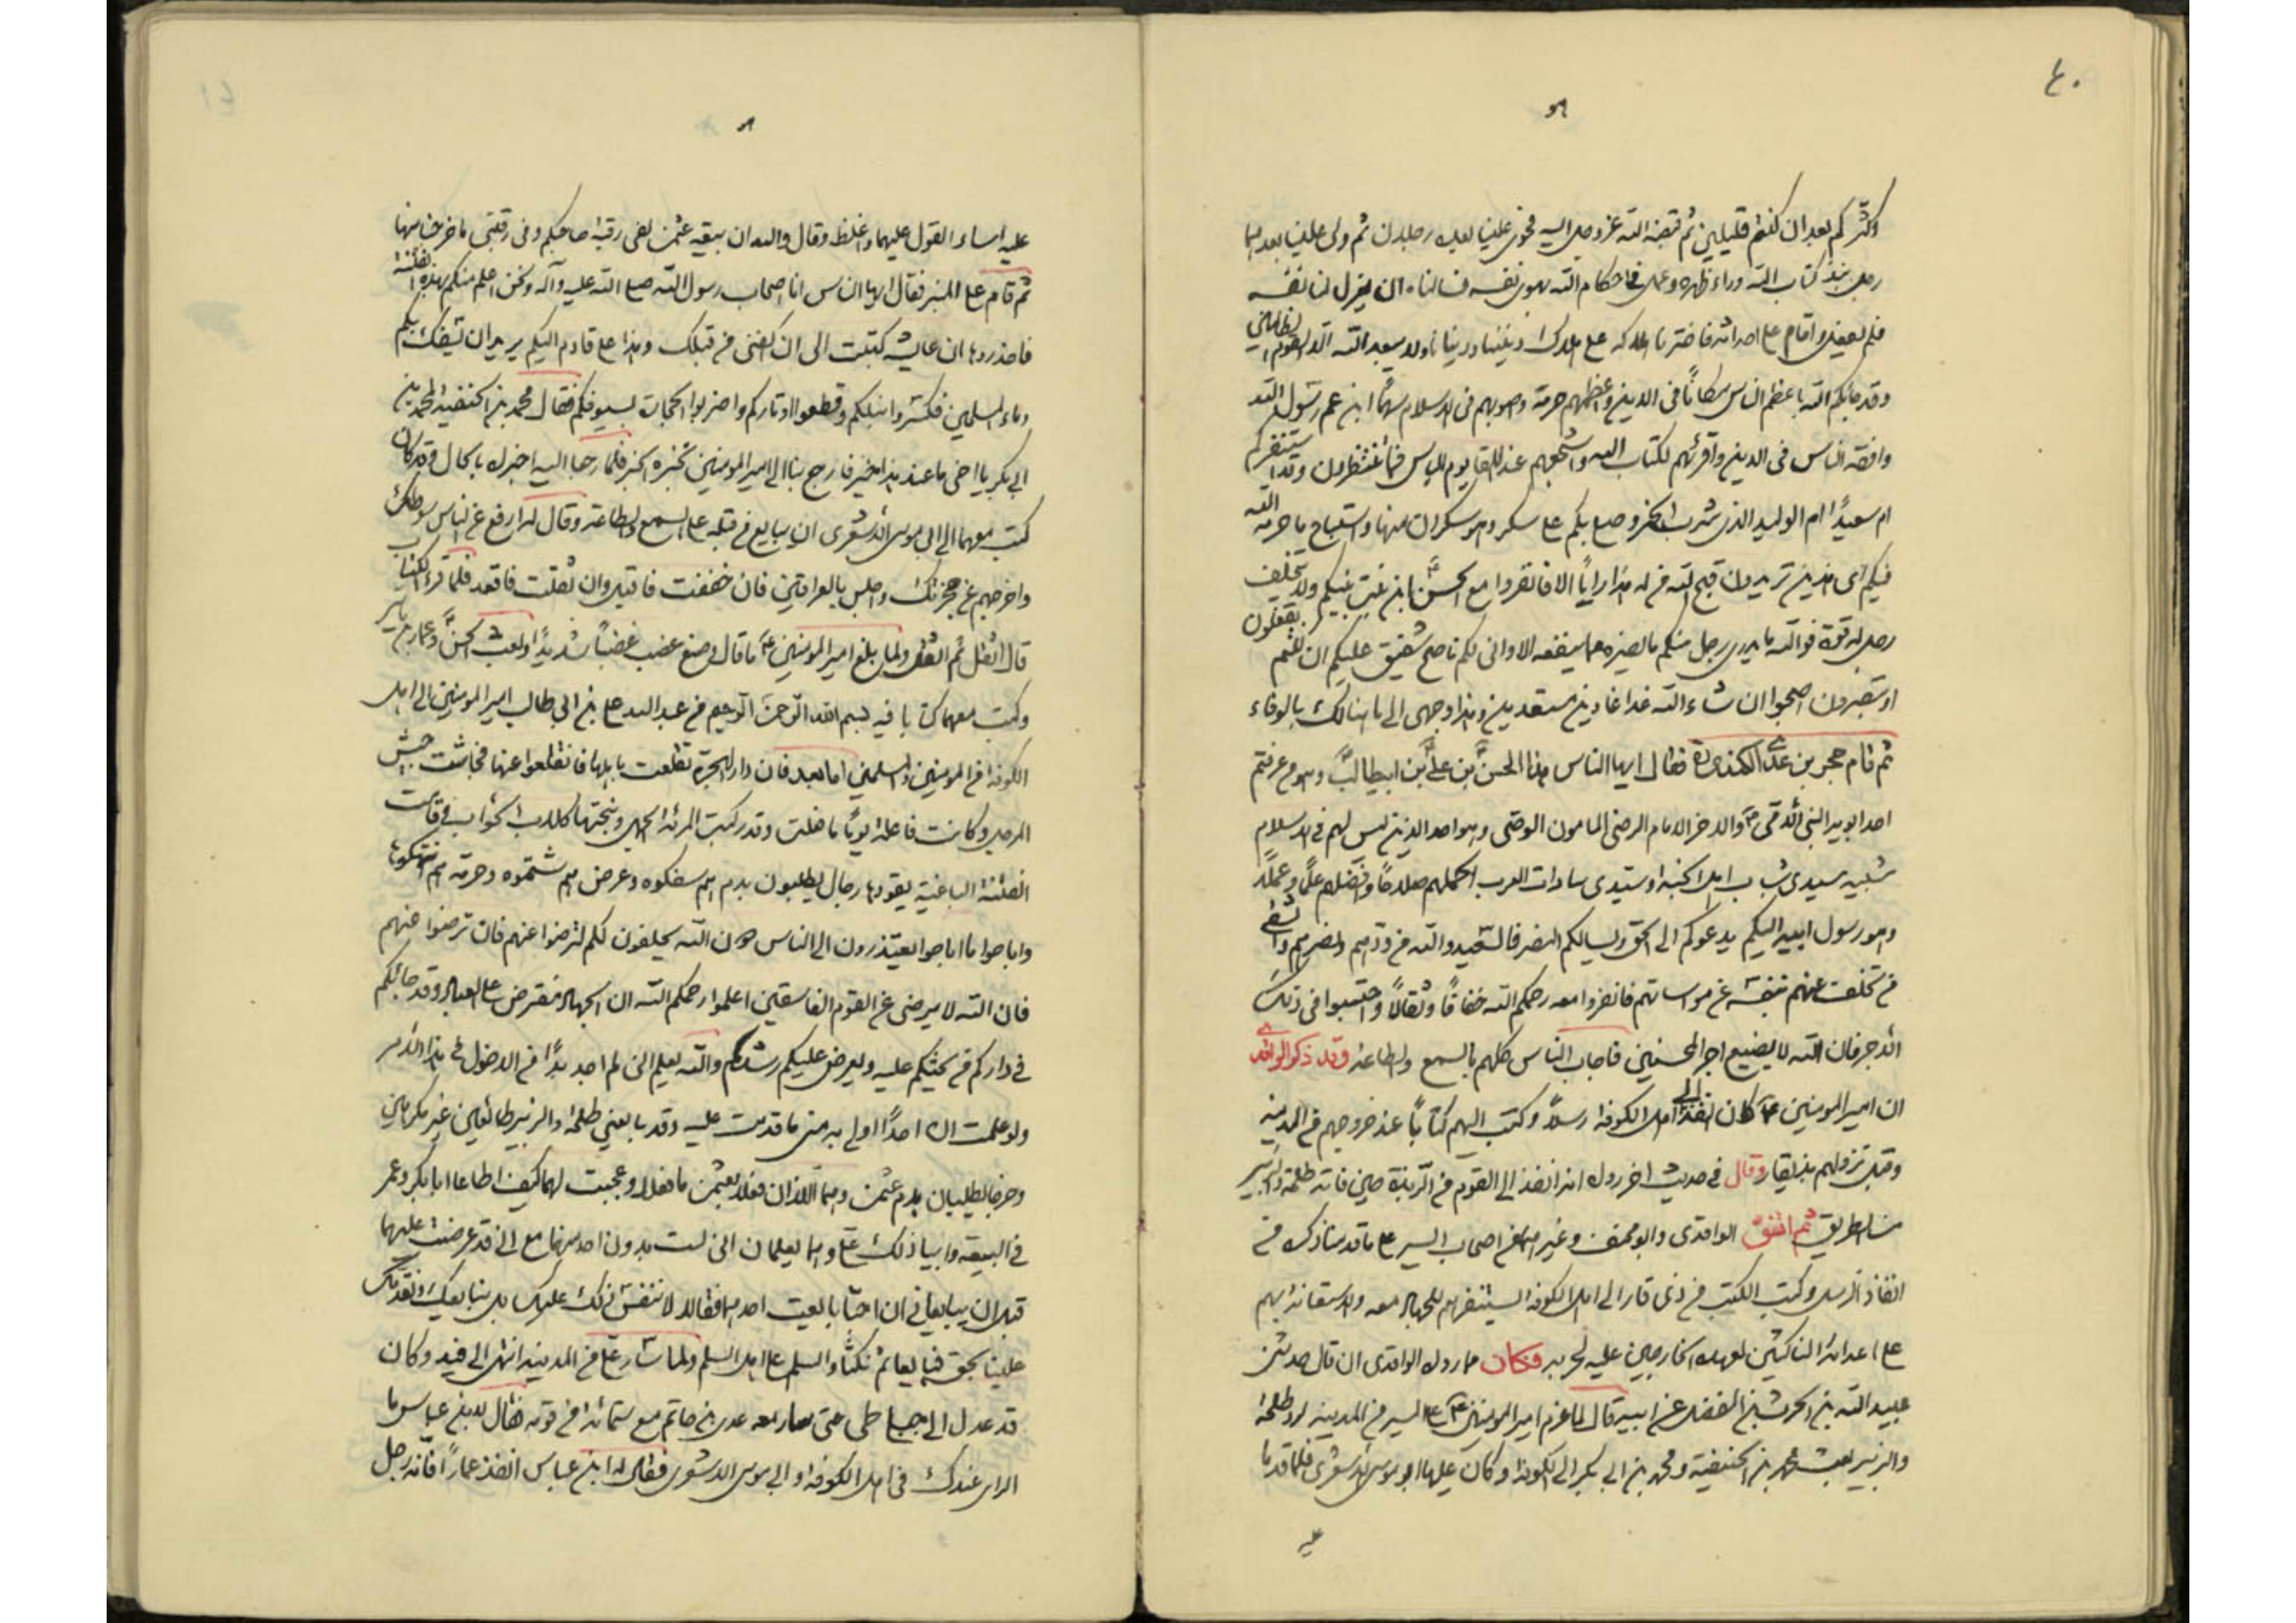 ٤٠
وكثركم بعد ان كنتم قليلين ثم قبضه الله عز وجل اليه فولى علينا بعده رجلان ثم ولى علينا بعدهما
رجل نبذ كتاب الله وراء ظهره وعمل فى احكام الله بهوى نفسه فسالناه ان يعزل لنا نفسه
فلم يفعل واقام على احداثه فاخترنا هلاكه على هلاك ديننا ودنيانا ولا يبعد الله الا القوم الظالمين
وقد جائكم الله باعظم الناس مكانًا فى الدين واعظمهم حرمة واصوبهم فى الاسلام سهمًا ابن عم رسول الله
وافقه الناس فى الدين واقرئهم لكتاب الله واشجعهم عند اللقا يوم الباس فما تنتظرون وقد استنفركم
ام سعيدًا ام الوليد الذى شرب الخمر وصلى بكم على سكر وهو سكران منها واستباح ما حرمه الله
فيكم اى هذين تريدون قبح الله من له هذا رايًا الا فانفروا مع الحسن ابن بنت نبيكم ولا يتخلف
رجل له قوة فوالله ما يدرى رجل منكم ما يضره مما ينفعه الا وانى لكم ناصح شفيق عليكم ان كنتم تعقلون
او تبصرون اصبحوا ان شاء الله غدا غادين مستعدين وهذا وجهى الى ما هنالك بالوفاء
ثم قام حجر بن عدى الكندى ره فقال ايها الناس هذا الحسن بن على بن ابيطالب وهو من عرفتم
احد ابويه النبى الامى ص والاخر الامام الرضى المامون الوصى وهو احد الذين ليس لهم فى الاسلام
شبيه سيدى شباب اهل الجنه وسيدى سادات العرب اكملهم صلاحًا وافضلهم علمًا وعملًا
وهو رسول ابيه اليكم يدعوكم الى الحق ويسالكم النصر فالسعيد والله من ودهم ونصرهم والشقى
من تخلف عنهم بنفسه عن مواساتهم فانفروا معه رحمكم الله خفافًا وثقالًا واحتسبوا فى ذلك
الاجر فان الله لا يضيع اجر المحسنين فاجاب الناس كلهم بالسمع والطاعة وقد ذكر الواقدى
ان امير المومنين ع كان انفذ الى اهل الكوفه رسلا وكتب اليهم كتابًا عند خروجهم من المدينه
وقبل نزولهم بذيقار وقال فى حديث اخر رواه انه انفذ الى القوم من الربذة حين فاته طلحة والزبير
من الطريق ثم اتفق الواقدى وابو مخنف وغيرهما من اصحاب السير على ما قدمنا ذكره من
انفاذ الرسل وكتب الكتب من ذى قار الى اهل الكوفه ليستنفرهم للجهاد معه والاستعانة بهم
على اعدائه الناكثين لعهده الخارجين عليه لحربه فكان مما رواه الواقدى ان قال حدثنى
عبيد الله بن الحرث بن الفضل عن ابيه قال لما عزم امير المومنين ع على السير من المدينه لرد طلحة
والزبير بعث محمد بن الحنفية ومحمد بن ابى بكر الى الكوفة وكان عليها ابو موسى الاشعرى فلما قدما
عليه
٤١
عليه اساء القول عليهما واغلظ وقال والله ان بيعة عثمن لفى رقبة صاحبكم وفى رقبتى ما خرجنا منها
ثم قام على المنبر فقال ايها الناس انا اصحاب رسول الله صلى الله عليه وآله ونحن اعلم منكم بهذه الفتنة
فاحذروها ان عايشه كتبت الى ان اكفنى من قبلك وهذا على قادم اليكم يريد ان يسفك بكم
دماء المسلمين فكسروا نبلكم وقطعوا اوتاركم واضربوا الحجارة بسيوفكم فقال محمد بن الحنفية لمحمد بن
ابى بكر يا اخى ما عند هذا خير فارجع بنا الى امير المومنين نخبره الخبر فلما رجعا اليه اخبراه بالحال وقد كان
كتب معهما الى ابى موسى الاشعرى ان يبايع من قبله على السمع والطاعة وقال له ارفع عن الناس سوطك
واخرجهم عن حجزتك واجلس بالعراقين فان خففت فاقبل وان ثقلت فاقعد فلما قرء الكتاب
قال اثقل ثم اثقل ولما بلغ امير المومنين ع ما قال وصنع غضب غضبًا شديدًا وبعث الحسن وعمار بن ياسر
وكتب معهما كتابا فيه بسم الله الرحمن الرحيم من عبد الله على بن ابى طالب امير المومنين الى اهل
الكوفة من المومنين والمسلمين اما بعد فان دار الهجرة تقلعت باهلها فانقلعوا عنها فجاشت جيش
المرجل وكانت فاعلة يومًا ما فعلت وقد ركبت المرئة الجمل ونبحتها كلاب الحواب وقامت
الفئة الباغية يقودها رجال يطلبون بدم هم سفكوه وعرض هم شتموه وحرمة هم انتهكوها
واباحوا ما اباحوا يعتذرون الى الناس دون الله يحلفون لكم لترضوا عنهم فان ترضوا عنهم
فان الله لا يرضى عن القوم الفاسقين اعلموا رحمكم الله ان الجهاد مفترض على العباد وقد جائكم
فى داركم من يحثكم عليه ويعرض عليكم رشدكم والله يعلم انى لم اجد بدًا من الدخول فى هذا الامر
ولو علمت ان احدًا اولى به منى ما قدمت عليه وقد بايعنى طلحة والزبير طائعين غير مكرهين
وخرجا يطلبان بدم عثمن وهما اللذان فعلا بعثمن ما فعلا وعجبت لهما كيف اطاعا ابا بكر وعمر
فى البيعه وابيا ذلك على وهما يعلمان انى لست بدون احد منهما مع انى قد عرضت عليهما
قبل ان يبايعانى ان احبا بايعت احدهما فقالا لا ننفس ذلك عليك بل نبايعك ونقدمك
علينا بحق فبايعا ثم نكثا والسلم على اهل السلم ولما سار على من المدينه انتهى الى فيد وكان
قد عدل الى جبال طى حتى سار معه عدى بن حاتم مع ستمائة من قومه فقال لابن عباس ما
الراى عندك فى اهل الكوفه وابى موسى الاشعرى فقال له ابن عباس انفذ عمارًا فانه رجل